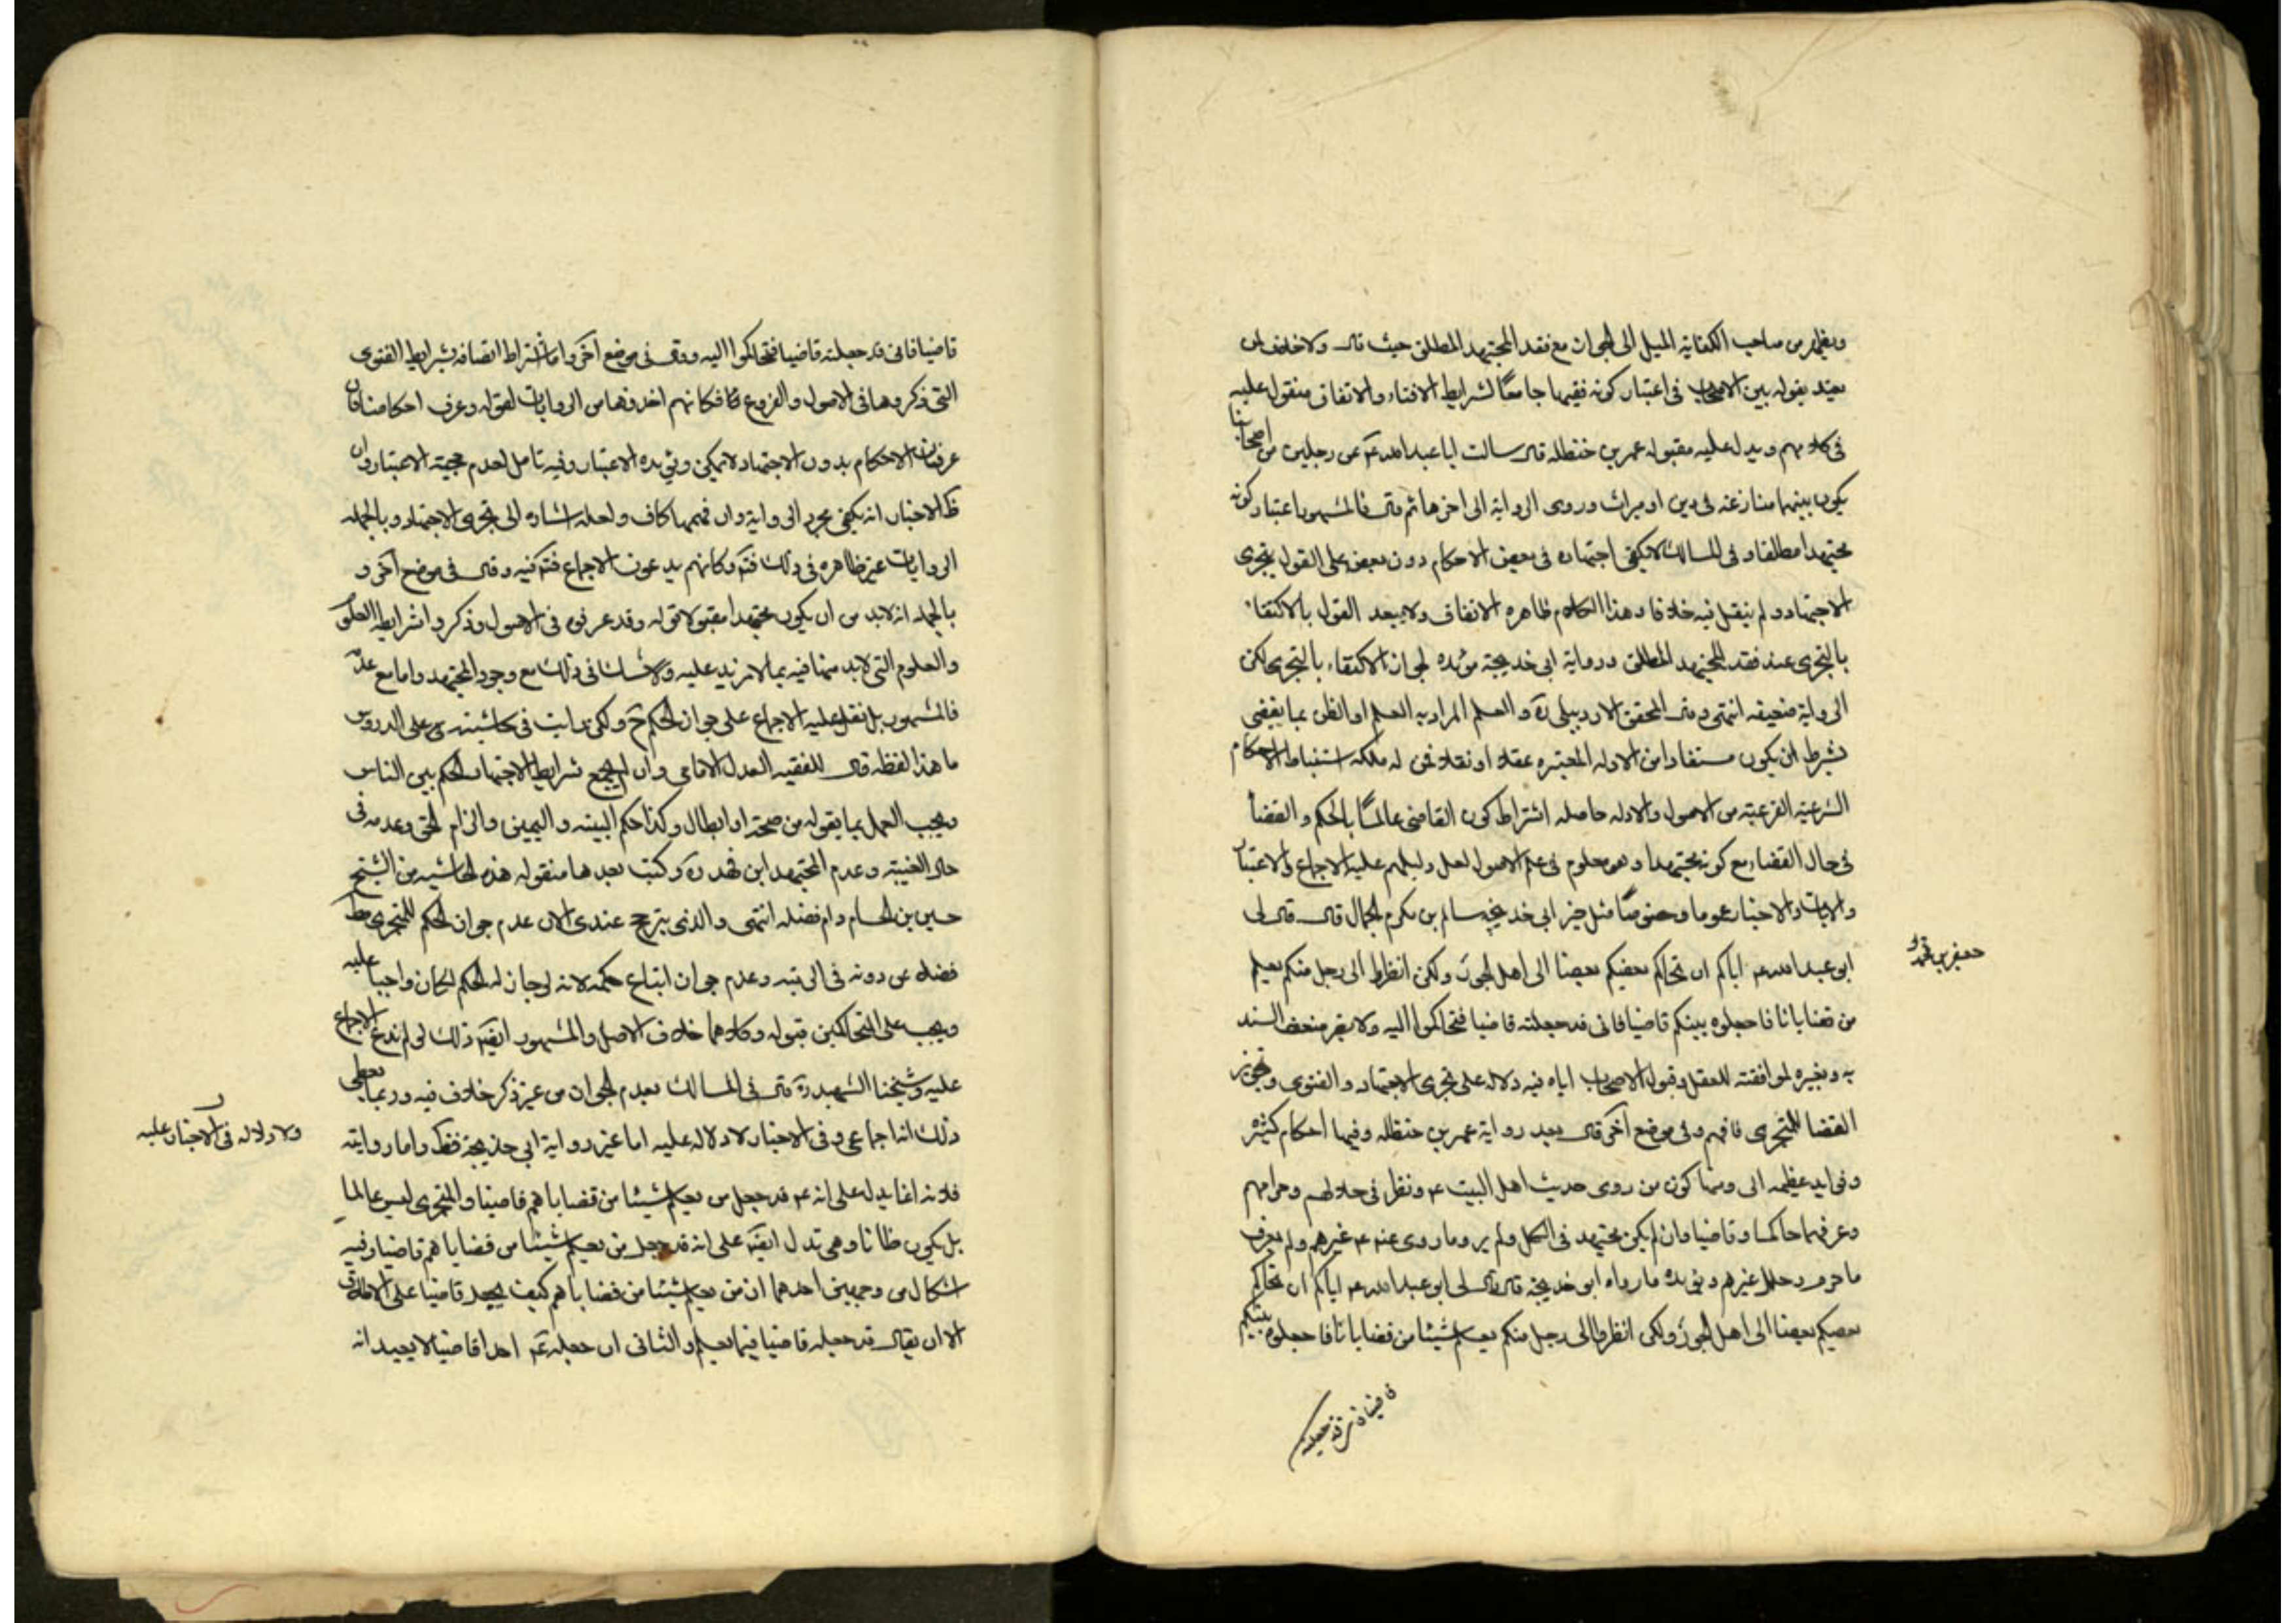 ويظهر من صاحب الكفاية الميل الى الجواز مع فقد المجتهد المطلق حيث قال ولا خلاف
بعيد بقوله بين الاصحاب فى اعتبار كونه فقيها جامعًا لشرايط الافتاء والاتفاق منقول عليه
فى كلامهم ويدل عليه مقبوله عمر بن حنظله قال سالت ابا عبد الله ع عن رجلين من اصحابنا
يكون بينهما منازعه فى دين او ميراث وروى الرواية الى اخرها ثم قال فالمشهور اعتبار كونه
مجتهدا مطلقا وفى المسالك لا يكفى اجتهاده فى بعض الاحكام دون بعض على القول بتجزى
الاجتهاد ولم ينقل فيه خلافا وهذا الكلام ظاهره الاتفاق ولا يبعد القول بالاكتفا
بالتجزى عند فقد المجتهد المطلق ورواية ابى خديجة مؤيده لجواز الاكتفاء بالتجزى لكن
الرواية ضعيفه انتهى وقال المحقق الاردبيلى ره و العلم المراد به العلم او الظن بما يقضى
بشرط ان يكون مستفادا من الادله المعتبره عقلا او نقلا لمن له ملكه استنباط الاحكام
الشرعية الفرعية من الاصول والادله حاصله اشتراط كون القاضى عالمًا بالحكم و القضا
فى حال القضاء مع كونه مجتهدا وهو معلوم فى علم الاصول لعل دليلهم عليه الاجماع والاعتبار
والايات والاخبار عموما وخصوصًا مثل خبر ابى خديجه سالم بن مكرم الجمال قال قال لى
ابو عبد الله ع اياكم ان يحاكم بعضكم بعضا الى اهل الجور ولكن انظروا الى رجل منكم يعلم
جعفر بن محمد
من قضايانا فاجعلوه بينكم قاضيا فانى قد جعلته قاضيا فتحاكموا اليه ولا يضر ضعف السند
به وبغيره لموافقته للعقل وقبول الاصحاب اياه فيه دلاله على تجزى الاجتهاد والفتوى وتجويز
القضا للمتجزى فافهم وفى موضع آخر قال بعد رواية عمر بن حنظله وفيها احكام كثيره
وفوايد عظيمه الى ومنها كون من روى حديث اهل البيت ع ونظر فى حلالهم وحرامهم
وعرفها حاكما وقاضيا وان لم يكن مجتهد فى الكل ولم يرو ما روى عنه ع غيرهم ولم يعرف
ما حرم وحلل غيرهم ويؤيده ما رواه ابو خديجة قال قال لى ابو عبد الله ع اياكم ان يحاكم
بعضكم بعضا الى اهل الجور ولكن انظروا الى رجل منكم يعلم شيئا من قضايانا فاجعلوه بينكم
قاضيا فانى قد جعلته
قاضيا فانى قد جعلته قاضيا فتحاكموا اليه وقال فى موضع آخر واما اشتراط اتصافه بشرايط الفتوى
التى ذكروها فى الاصول والفروع فكانهم اخذوها من الروايات لقوله وعرف احكامنا فان
عرفان الاحكام بدون الاجتهاد لا يمكن ويؤيده الاعتبار وفيه تامل لعدم حجية الاعتبار وان
ظ الاخبار انه يكفى مجرد الرواية وان فهمها كاف ولعله اشاره الى تجزى الاجتهاد وبالجمله
الروايات غير ظاهره فى ذلك وكانهم يدعون الاجماع فيه وقال فى موضع آخر و
بالجمله انه لابد من ان يكون مجتهدا مقبولا قوله وقد عرفوه فى الاصول وذكروا شرايطه
والعلوم التى لابد منها فيه بما لا مزيد عليه ولا شك فى ذلك مع وجود المجتهد واما مع عدمه
فالمشهور بل نقل عليه الاجماع على جواز الحكم ح ولكن رايت فى حاشيته على الدروس
ما هذا لفظه قال للفقيه العدل الامامى وان لم يجمع شرايط الاجتهاد الحكم بين الناس
ويجب العمل بما يقوله من صحة او ابطال وكذا حكم البينه واليمين والزام الحق وعدمه فى
حال الغيبة وعدم المجتهد ابن فهد ره وكتب بعدها منقوله هذه الحاشيه من الشيخ
حسين بن الحسام دام فضله انتهى والذى يترجح عندى الان عدم جواز الحكم للمتجزى
فضلا عن دونه فى الرتبه وعدم جواز اتباع حكمه لانه لو جاز له الحكم لكان واجبا عليه
ويجب على المتحاكمين قبوله وكلاهما خلاف الاصل والمشهور ذلك لو لم ندع الاجماع
عليه وشيخنا الشهيد ره قال فى المسالك بعدم الجواز من غير ذكر خلاف فيه وربما يعطى
ذلك انه اجماعى وفى الاخبار لا دلاله عليه اما غير رواية ابى خديجة واما روايته
ولا دلاله فى الاخبار عليه
فلانه انما يدل على انه ع قد جعل من يعلم شيئا من قضاياهم قاضيا والمتجزى ليس عالما
بل يكون ظانا وهى تدل على انه قد جعل من يعلم شيئا من قضاياهم قاضيا وفيه
اشكال من وجهين احدهما ان من يعلم شيئا من قضاياهم كيف يجعله قاضيا على
الا ان يقال قد جعله قاضيا فيما يعلم والثانى ان جعله ع احدا قاضيا لا يفيد انه